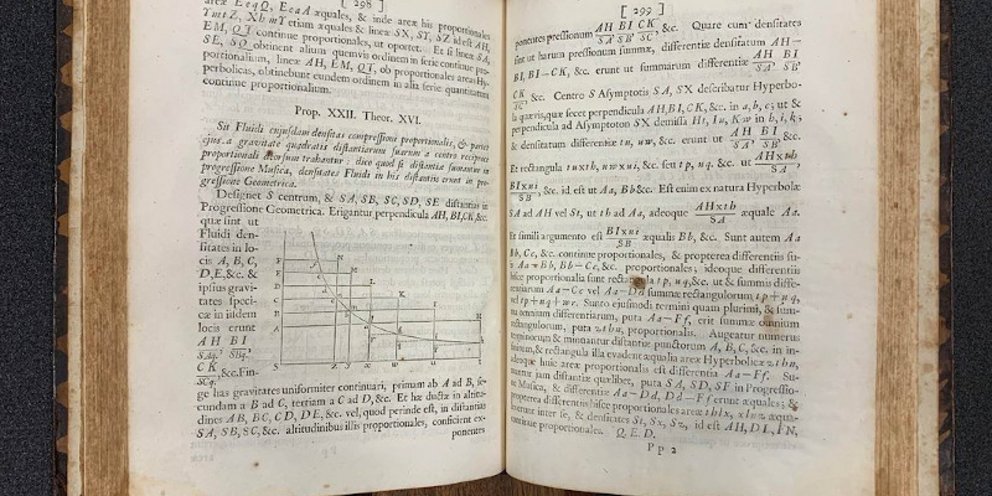 [ 298 ]
areæ EeqQ, EeaA æquales, & inde areæ his proportionales
YmtZ, XhmY etiam æquales & lineæ SX, SY, SZ id est AH,
EM, QT continue proportionales, ut oportet. Et si lineæ SA,
SE, SQ obtinent alium quemvis ordinem in serie continue pro-
portionalium, lineæ AH, EM, QT, ob proportionales areas Hy-
perbolicas, obtinebunt eundem ordinem in alia serie quantitatum
continue proportionalium.
Prop. XXII. Theor. XVI.
Sit Fluidi cujusdam densitas compressioni proportionalis, & partes
ejus a gravitate quadratis distantiarum suarum a centro reciproce
proportionali deorsum trahantur: dico quod si distantiæ sumantur in
progressione Musica, densitates Fluidi in his distantiis erunt in pro-
gressione Geometrica.
Designet S centrum, & SA, SB, SC, SD, SE distantias in
Progressione Geometrica. Erigantur perpendicula AH, BI, CK, &c.
quæ sint ut
Fluidi den-
sitates in lo-
cis A, B, C,
D, E, &c. &
ipsius gravi-
tates speci-
cæ in iisdem
locis erunt
AH BI
SAq.' SBq.'
CK
SCq. , &c. Fin-
ge has gravitates uniformiter continuari, primam ab A ad B, se-
cundam a B ad C, tertiam a C ad D, &c. Et hæ ductæ in altitu-
dines AB, BC, CD, DE, &c. vel, quod perinde est, in distantias
SA, SB, SC, &c. altitudinibus illis proportionales, conficient ex-
ponentes
[ 299 ]
ponentes pressionum AH BI CK
SA' SB' SC' &c. Quare cum densitates
sint ut harum pressionum summæ, differentiæ densitatum AH—
BI, BI—CK, &c. erunt ut summarum differentiæ AH BI
SA' SB'
CK
SC' &c. Centro S Asymptotis SA, SX describatur Hyperbo-
la quævis, quæ secet perpendicula AH, BI, CK, &c. in a, b, c; ut &
perpendicula ad Asymptoton SX demissa Ht, Iu, Kw in h, i, k;
& densitatum differentiæ tu, uw, &c. erunt ut AH BI
SA' SB' &c.
Et rectangula tu x th, uw x ui, &c. seu tp, uq, &c. ut AH x th
SA,
BI x ui
SB , &c. id est ut Aa, Bb &c. Est enim ex natura Hyperbolæ
SA ad AH vel St, ut th ad Aa, adeoque AH x th
SA æquale Aa.
Et simili argumento est BI x ui
SB æqualis Bb, &c. Sunt autem Aa
Bb, Cc, &c. continue proportionales, & propterea differentiis su-
is Aa—Bb, Bb—Cc, &c. proportionales; ideoque differentiis
hisce proportionalia sunt rectangula tp, uq, &c. ut & summis diffe-
rentiarum Aa—Cc vel Aa—Dd summæ rectangulorum tp+uq,
vel tp+uq+wr. Sunto ejusmodi termini quam plurimi, & sum-
ma omnium differentiarum, puta Aa—Ff, erit summæ omnium
rectangulorum, puta zthn, proportionalis. Augeatur numerus
terminorum & minuantur distantiæ punctorum A, B, C, &c. in in-
finitum, & rectangula illa evadent æqualia areæ Hyperbolicæ zthn,
ideoque huic areæ proportionalis est differentia Aa—Ff. Su-
mantur jam distantiæ quælibet, puta SA, SD, SF in Progressio-
ne Musica, & differentiæ Aa—Dd, Dd—Ff erunt æquales; &
propterea differentiis hisce proportionales areæ thlx, xlnz æqua-
les erunt inter se, & densitates St, Sx, Sz, id est AH, DL, FN,
continue proportionales. Q. E. D.
Pp 2